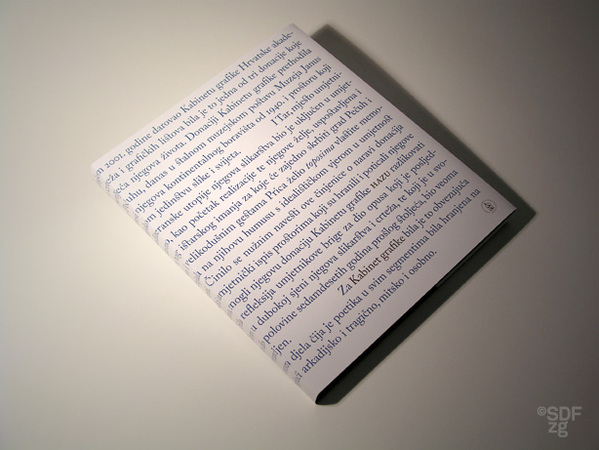 n 2001. godine darovao Kabinetu grafike Hrvatske akade-
eža i grafičkih listova bila je to jedna od tri donacije koje
seća njegova života. Donaciji Kabinetu grafike prethodila
uhu, danas u stalnom muzejskom postavu Muzeja Janus
njegova kontinentalnog boravišta od 1940. i prostoru koji
n jedinstvu slike i svijeta. I Tar, mjesto umjetni-
granske utopije njegova slikarstva bio je uključen u umjet-
, kao početak realizacije te njegove želje, uspostavljena i
ištarskog imanja za koje će zajedno skrbiti grad Pečuh i
velikodušnim gestama Prica želio ispisima vlastite memo-
ja na njihovu humusu s idealističkom vjerom u umjetnost
Činilo se nužnim navesti ove činjenice o naravi donacija
umjetnički ispis prostorima koji su hranili i poticali njegove
mogli njegovu donaciju Kabinetu grafike HAZU razlikovati
refleksija umjetnikove brige za dio opusa koji je posljed-
u dubokoj sjeni njegova slikarstva i crteža, te koji je u svo-
polovine sedamdesetih godina prošlog stoljeća, bio veoma
ijen. Za Kabinet grafike bila je to obvezujuća
a djela čija je poetika u svim segmentima bila hranjena na
ti arkadijsko i tragično, mitsko i osobno.
©SDF
zg